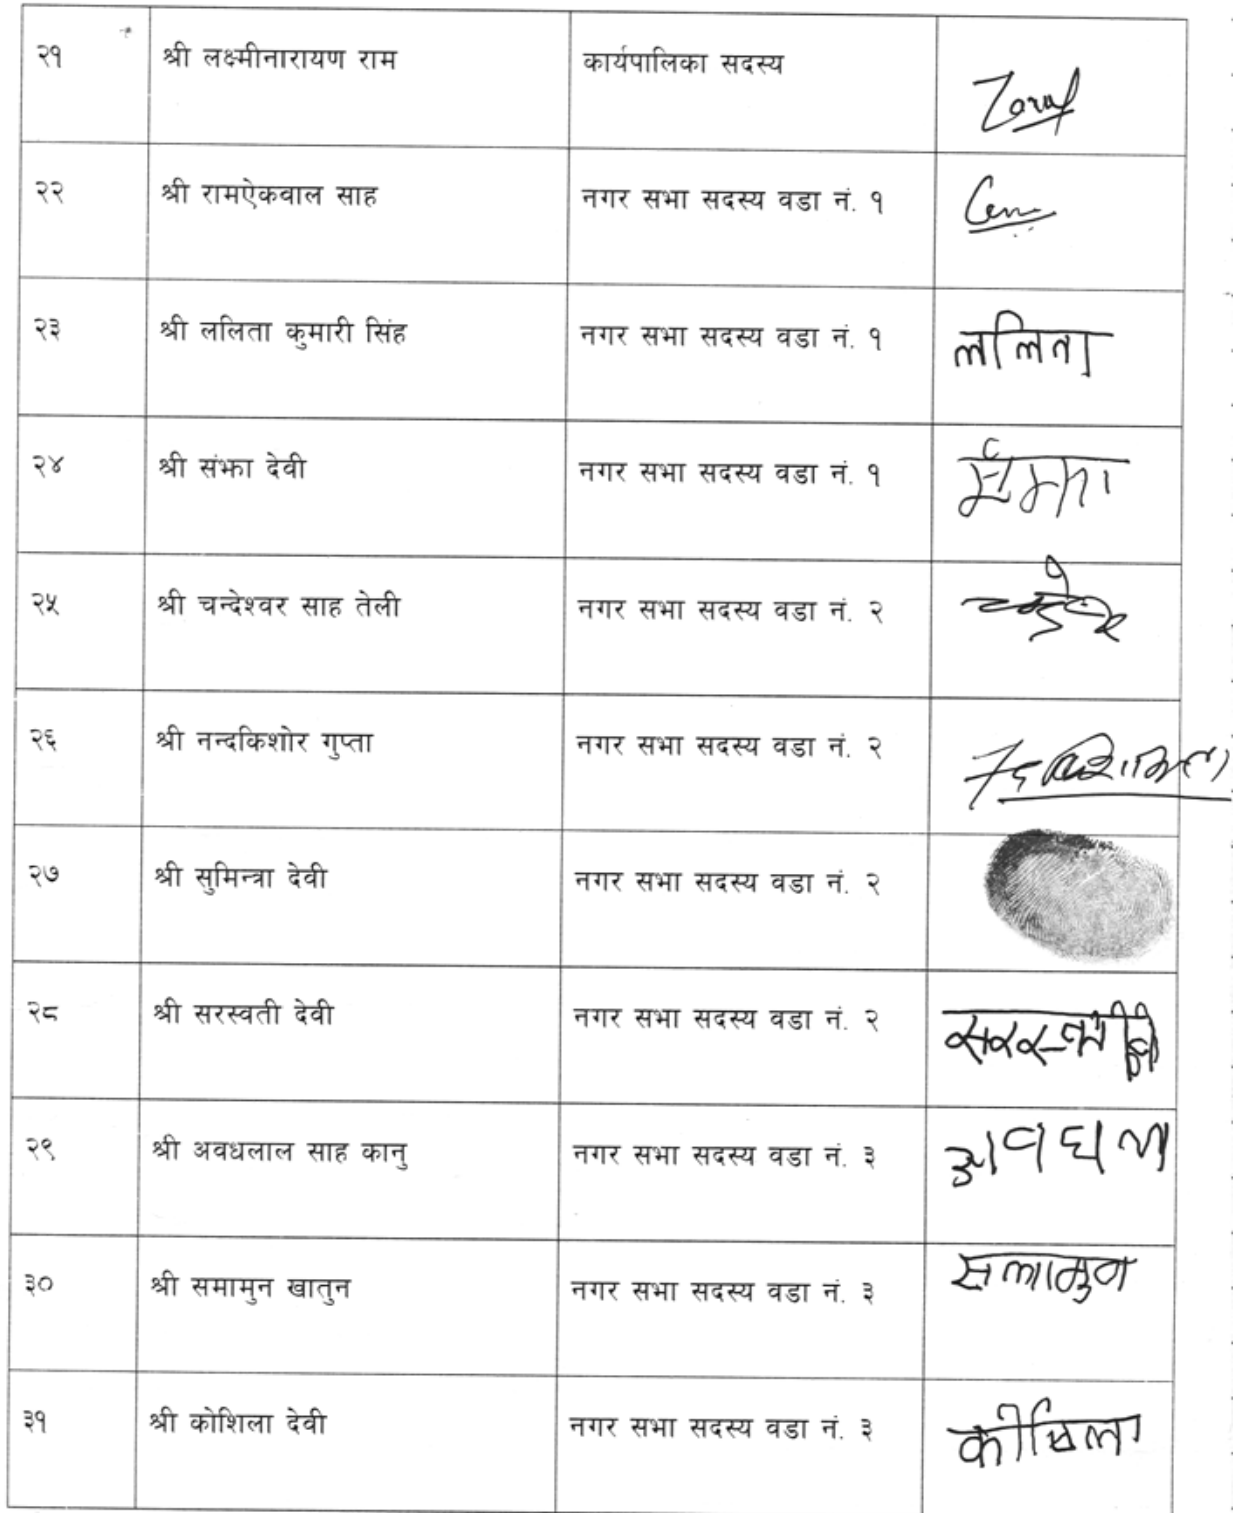 २१ श्री लक्ष्मीनारायण राम कार्यपालिका सदस्य
२२ श्री रामऐकवाल साह नगर सभा सदस्य वडा नं. १
२३ श्री ललिता कुमारी सिंह नगर सभा सदस्य वडा नं. १ ललिता
२४ श्री संझा देवी नगर सभा सदस्य वडा नं. १ संझा
२५ श्री चन्देश्वर साह तेली नगर सभा सदस्य वडा नं. २
२६ श्री नन्दकिशोर गुप्ता नगर सभा सदस्य वडा नं. २
२७ श्री सुमिन्त्रा देवी नगर सभा सदस्य वडा नं. २
२८ श्री सरस्वती देवी नगर सभा सदस्य वडा नं. २
२९ श्री अवधलाल साह कानु नगर सभा सदस्य वडा नं. ३
३० श्री समामुन खातुन नगर सभा सदस्य वडा नं. ३
३१ श्री कोशिला देवी नगर सभा सदस्य वडा नं. ३